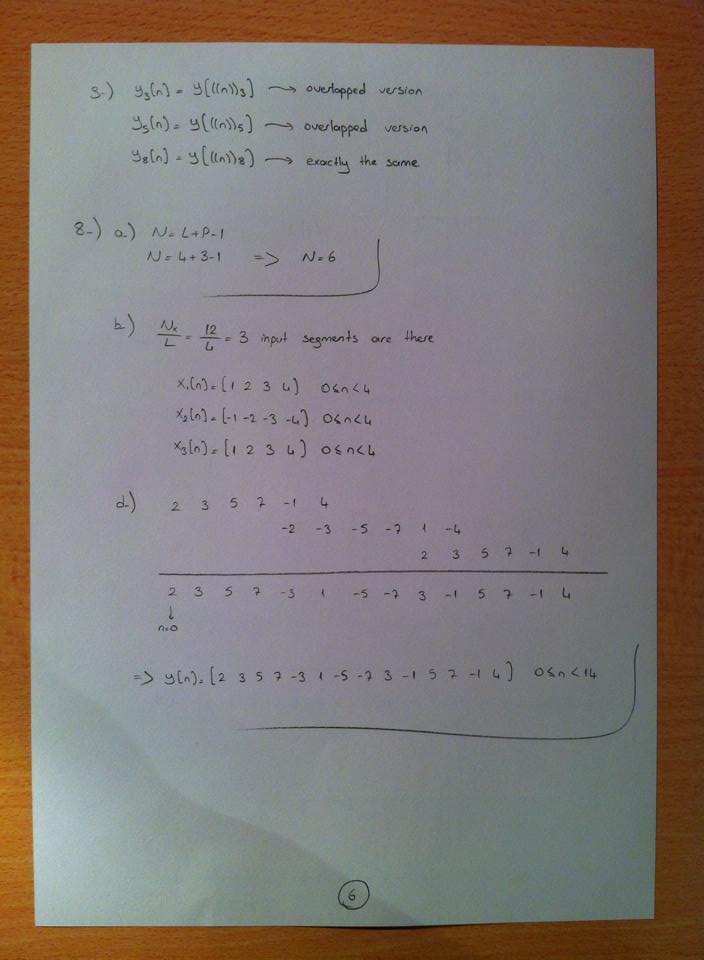 3-) y₃[n] = y[((n))₃] → overlapped version
y₅[n] = y[((n))₅] → overlapped version
y₈[n] = y[((n))₈] → exactly the same
8-) a-) N = L+P-1
N = 4+3-1 => N=6
b-) Nₓ/L = 12/4 = 3 input segments are there
x₁[n] = [1 2 3 4] 0≤n<4
x₂[n] = [-1 -2 -3 -4] 0≤n<4
x₃[n] = [1 2 3 4] 0≤n<4
d-) 2 3 5 7 -1 4
-2 -3 -5 -7 1 -4
2 3 5 7 -1 4
2 3 5 7 -3 1 -5 -7 3 -1 5 7 -1 4
↓
n=0
=> y[n] = [2 3 5 7 -3 1 -5 -7 3 -1 5 7 -1 4] 0≤n<14
6